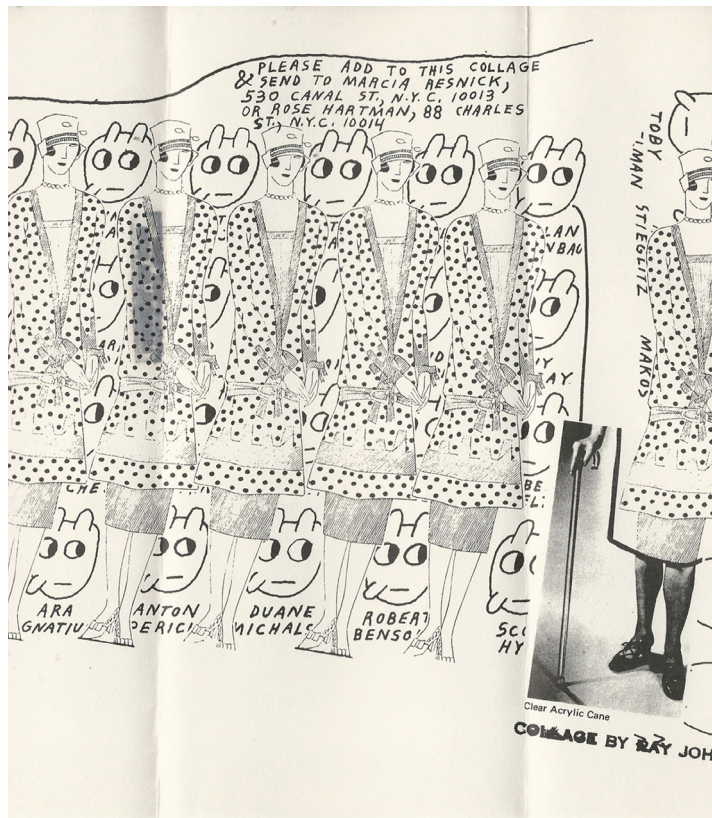 PLEASE ADD TO THIS COLLAGE
& SEND TO MARCIA RESNICK,
530 CANAL ST., N.Y.C. 10013
OR ROSE HARTMAN, 88 CHARLES
ST., N.Y.C. 10014
TOBY
-IMAN STIEGLITZ
MAKOS
LAN
NBAU
Y
AY.
CHE
BE
ARA
GNATIU
ANTON
PERICI
DUANE
MICHALS
ROBERT
BENSO
SCO
HY
Clear Acrylic Cane
COLLAGE BY RAY JOH